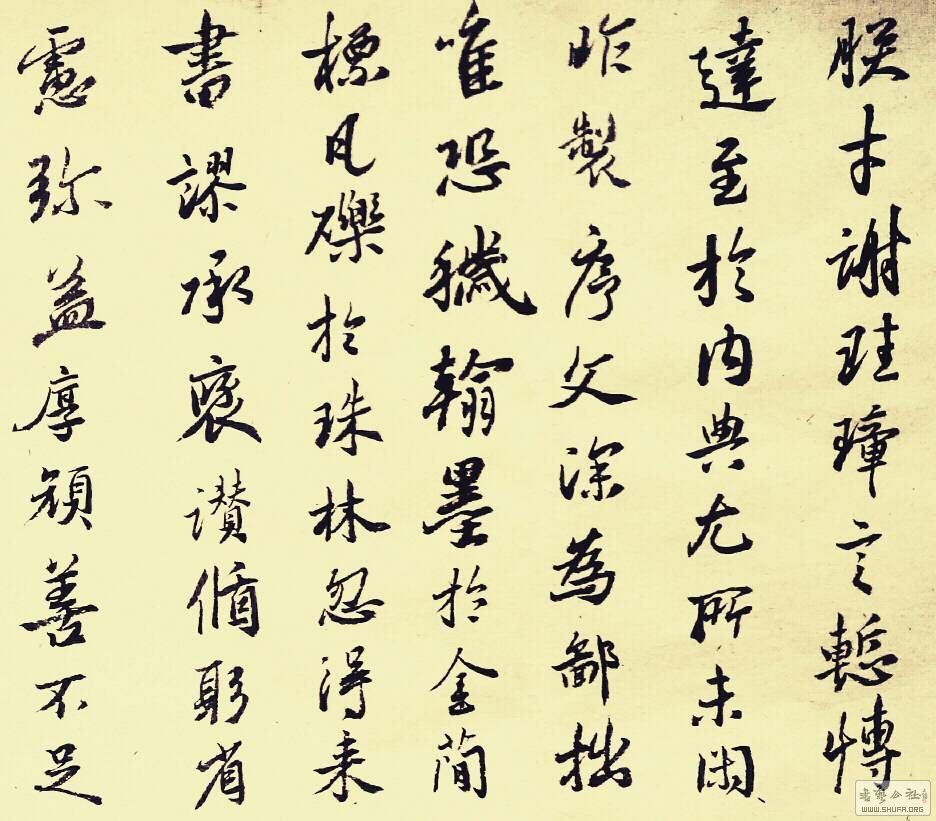 朕才謝珪璋言慙博
達至於内典尤所未閑
昨製序文深為鄙拙
唯恐穢翰墨於金簡
標瓦礫於珠林忽得来
書謬承褒讃循躬省
慮弥益厚顔善不足
WWW.SHUFA.ORG